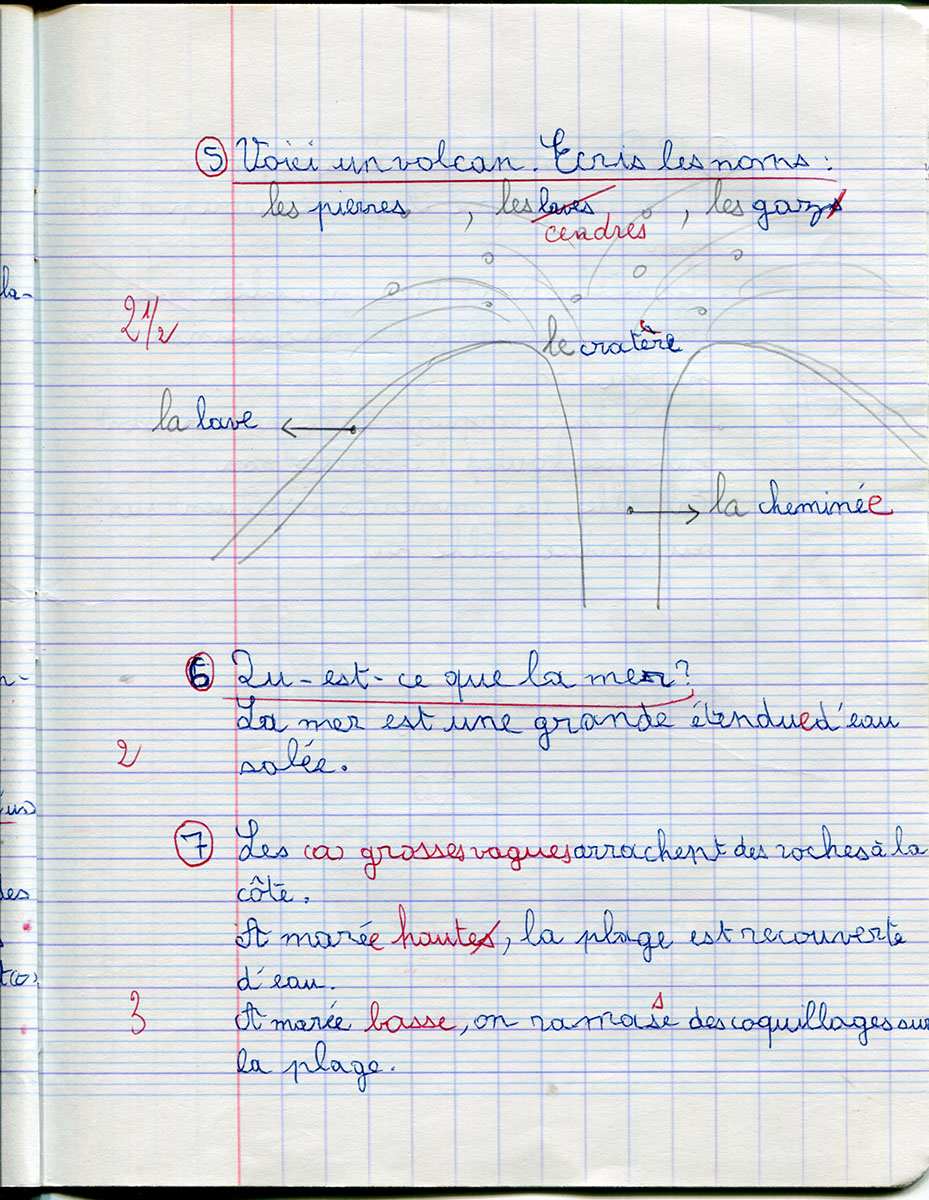 ⑤ Voici un volcan. Ecris les noms :
les pierres , les laves , les gazs
cendres
le cratère
la lave
2 1/2
la cheminée
⑥ Qu-est-ce que la mer?
La mer est une grande étendue d'eau
salée.
2
⑦ Les (a) grosses vagues arrachent des roches à la
côte.
A marée hautes, la plage est recouverte
d'eau.
A marée basse, on ramase des coquillages sur
s
la plage.
3
la-
n-
les